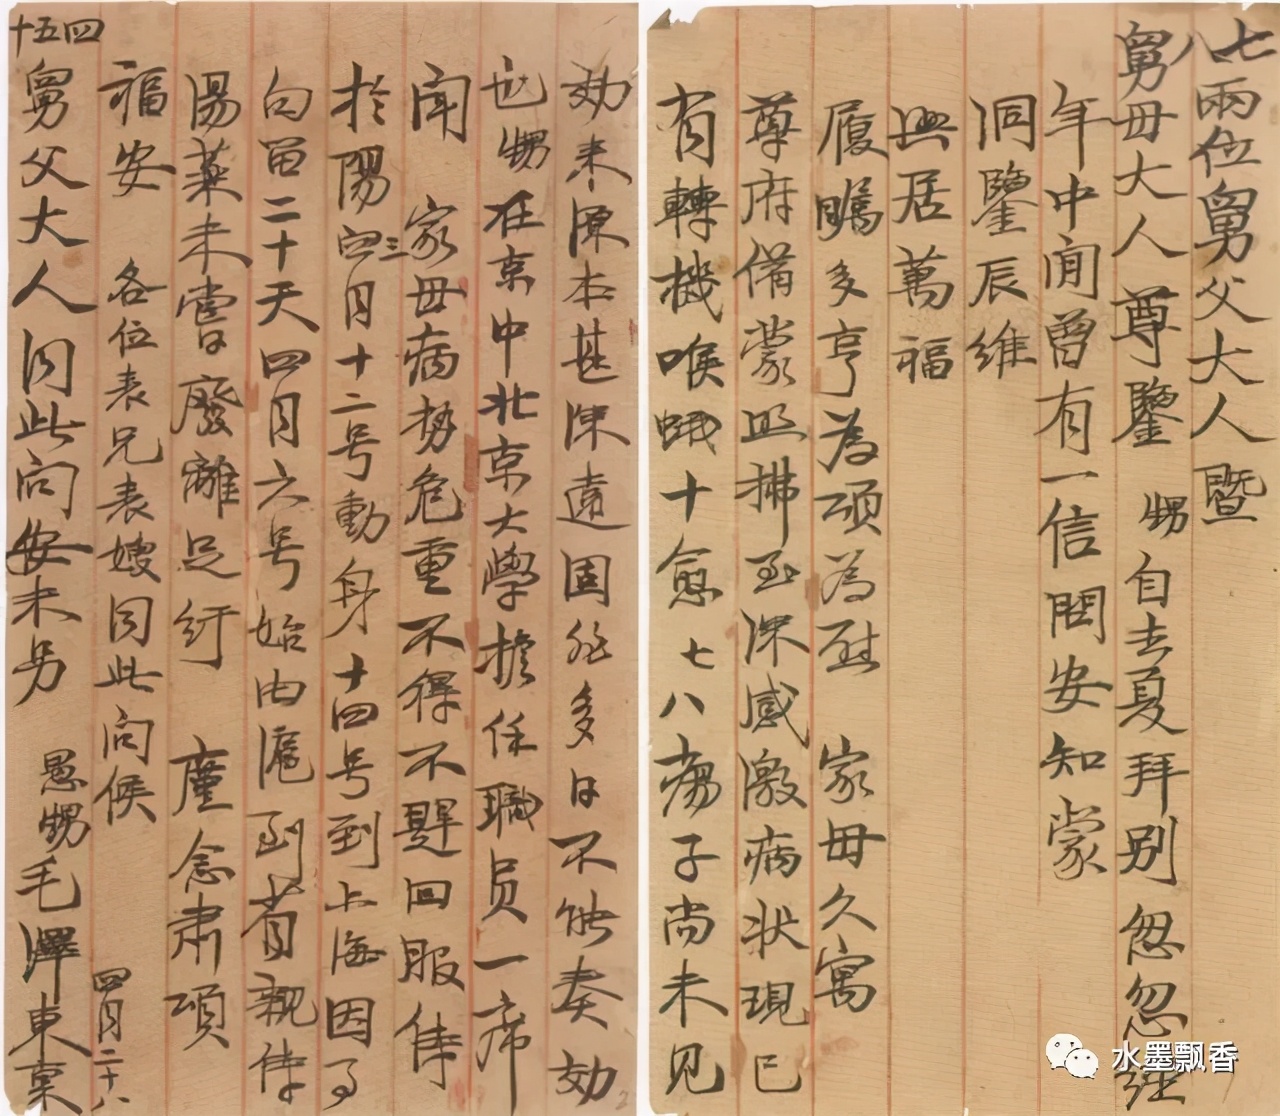 七八兩位舅父大人暨
舅母大人尊鑒 甥自去夏拜別忽忽經
年中間曾有一信問安知蒙
洞鑒辰維
興居萬福
履瞩多亨為頌為慰 家母久寓
尊府備蒙照拂至深感激病状現已
有轉機喉蛾十愈七八瘍子尚未见
効来源本甚深遠固非多日不能奏効
也甥在京中北京大學擔任職員一席
聞 家母病势危重不得不趕回服侍
於陽三月十二号動身十四号到上海因事
勾留二十天四月六号始由滬到省親侍
湯藥未嘗廢離足紓 廑念肃頌
福安 各位表兄表嫂同此问候 四月二十八
四五十舅父大人同此问安未另 愚甥毛澤東稟
水墨飘香